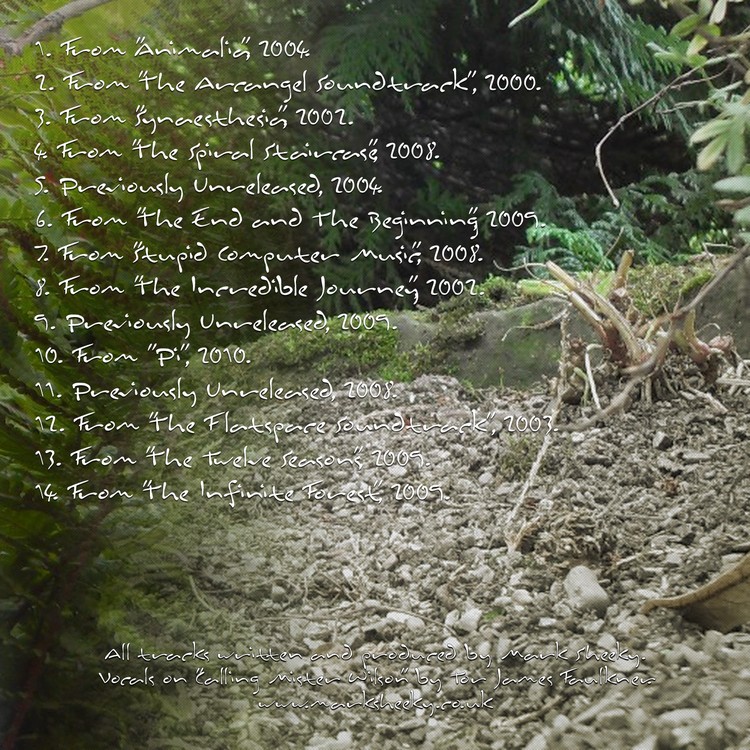 1. From "Animalia", 2004.
2. From "The Arcangel Soundtrack", 2000.
3. From "Synaesthesia", 2002.
4. From "The Spiral Staircase", 2008.
5. Previously Unreleased, 2004.
6. From "The End and The Beginning", 2009.
7. From "Stupid Computer Music", 2008.
8. From "The Incredible Journey", 2002.
9. Previously Unreleased, 2009.
10. From "Pi", 2010.
11. Previously Unreleased, 2008.
12. From "The Flatspace Soundtrack", 2003.
13. From "The Twelve Seasons", 2009.
14. From "The Infinite Forest", 2009.
All tracks written and produced by Mark Sheeky.
Vocals on "Calling Mister Wilson" by Tor James Faulkner
www.marksheeky.co.uk